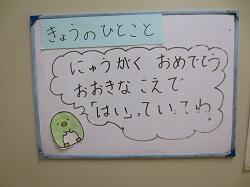 きょうのひとこと
にゅうがく おめでとう
おおきな こえで
「はい」っていこわ